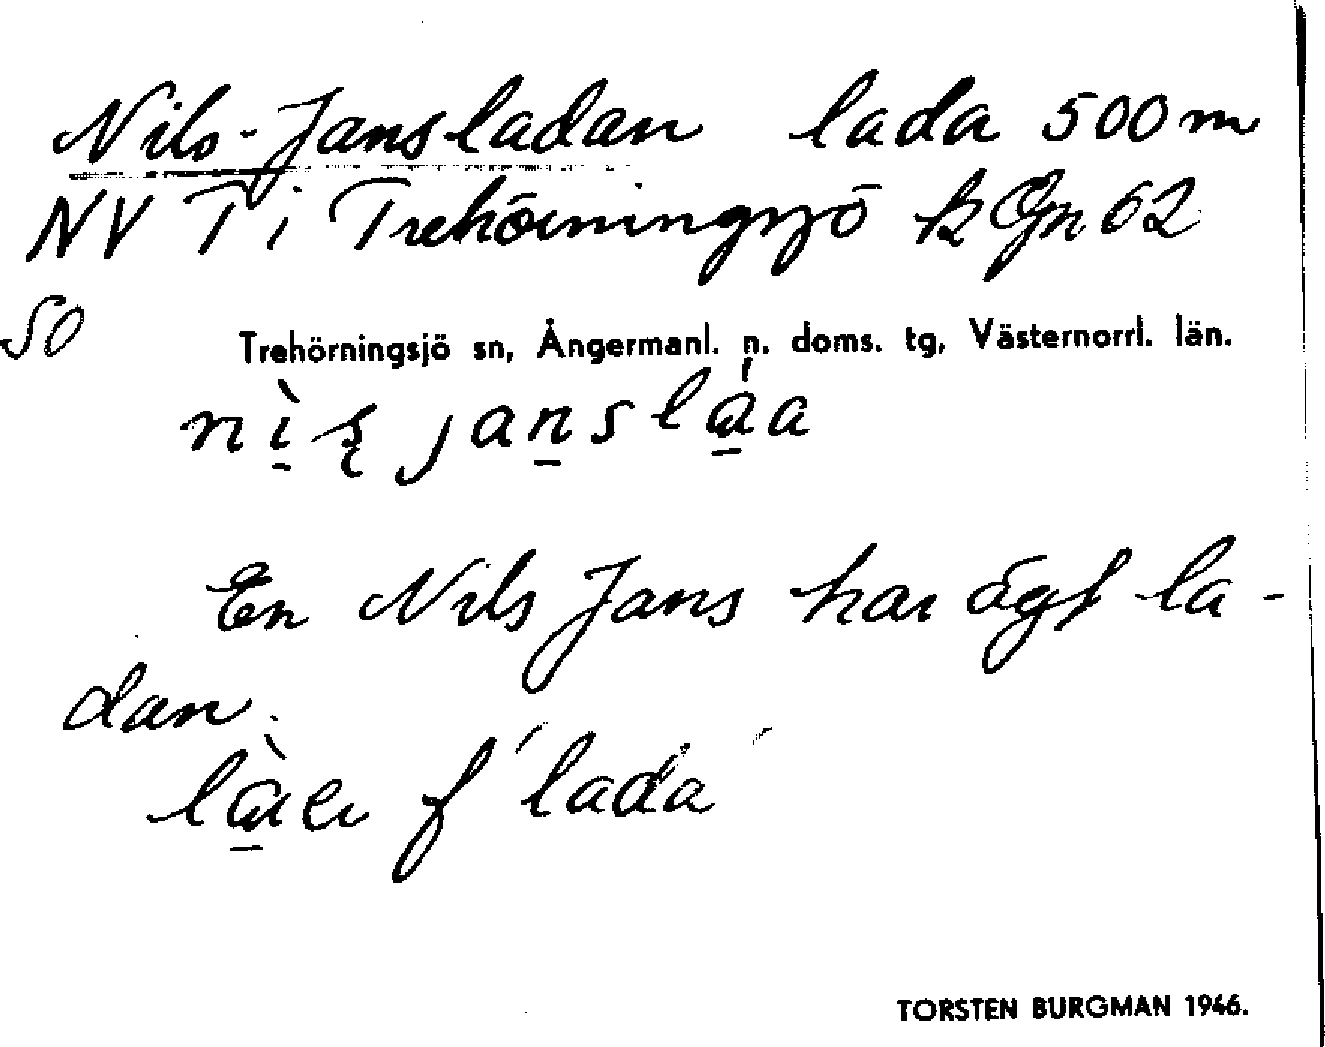 Nils-Jansladan lada 500 m
NV T i Trehörningsjö k Gn 62
50
Trehörningsjö sn, Ångermanl. n. doms. tg, Västernorrl. län.
En Nils Jans har ägt la-
dan.
f 'lada'
TORSTEN BURGMAN 1946.